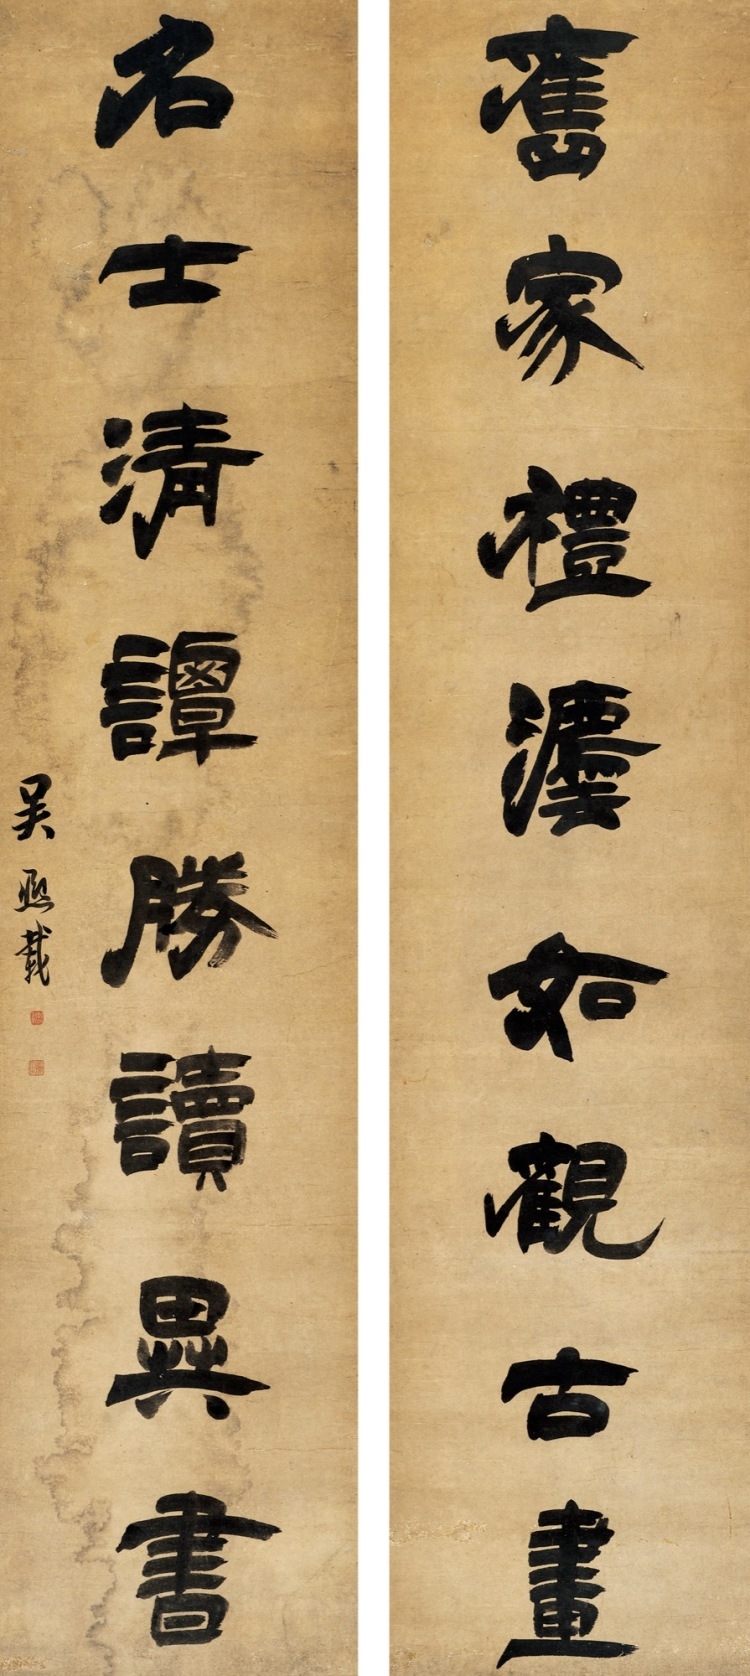 舊家禮灋如觀古畫
名士清譚勝讀異書
吳熙載